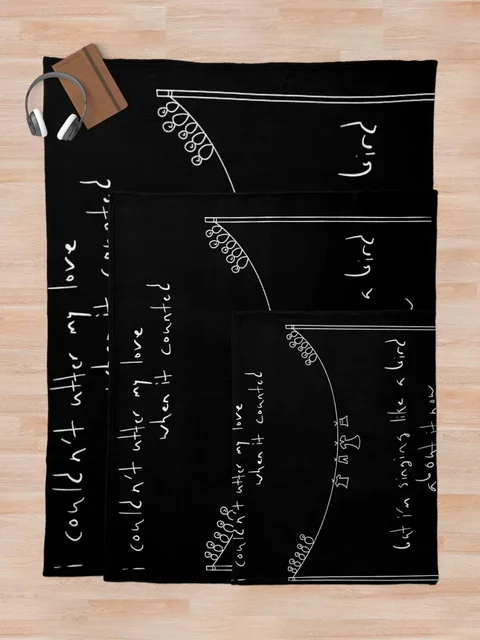 i couldn't utter my love
when it counted
bird
i couldn't utter my love
when it counted
a bird
i couldn't utter my love
when it counted
but i'm singing like a bird
'bout it now